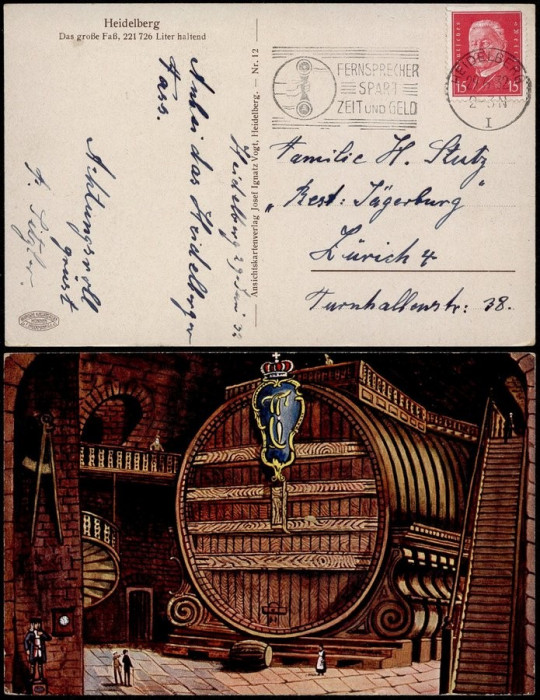 Heidelberg
Das große Faß, 221 726 Liter haltend
Anbei das Heidelberger
Fass.
Achtungsvoll
grüsst
Heidelberg 29 Juni 32
Ansichtskartenverlag Josef Ignatz Vogt, Heidelberg. — Nr. 12
FERNSPRECHER
SPART
ZEIT UND GELD
15 15
HEIDELBERG
2-3 N
I
Familie H. Stutz
„Rest: Jägerburg"
Zürich 4
Turnhallenstr: 38.